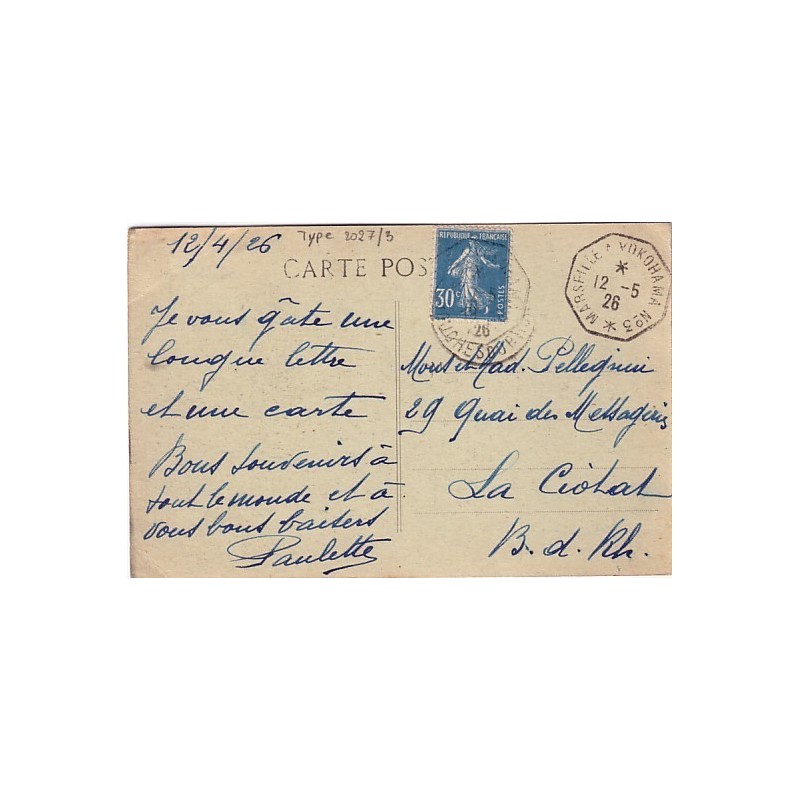 12/4/26 Type 2027/3
CARTE POST
REPUBLIQUE FRANÇAISE
30c
POSTES
26
BOUCHES DU RHONE
MARSEILLE A YOKOHAMA N°3
*
12 -5
26
*
Je vous gâte une
longue lettre
et une carte
Bons souvenirs à
tout le monde et à
vous bons baisers
Paulette
Mons et Mad. Pellegrin
29 Quai des Messageries
La Ciotat
B. d. Rh.